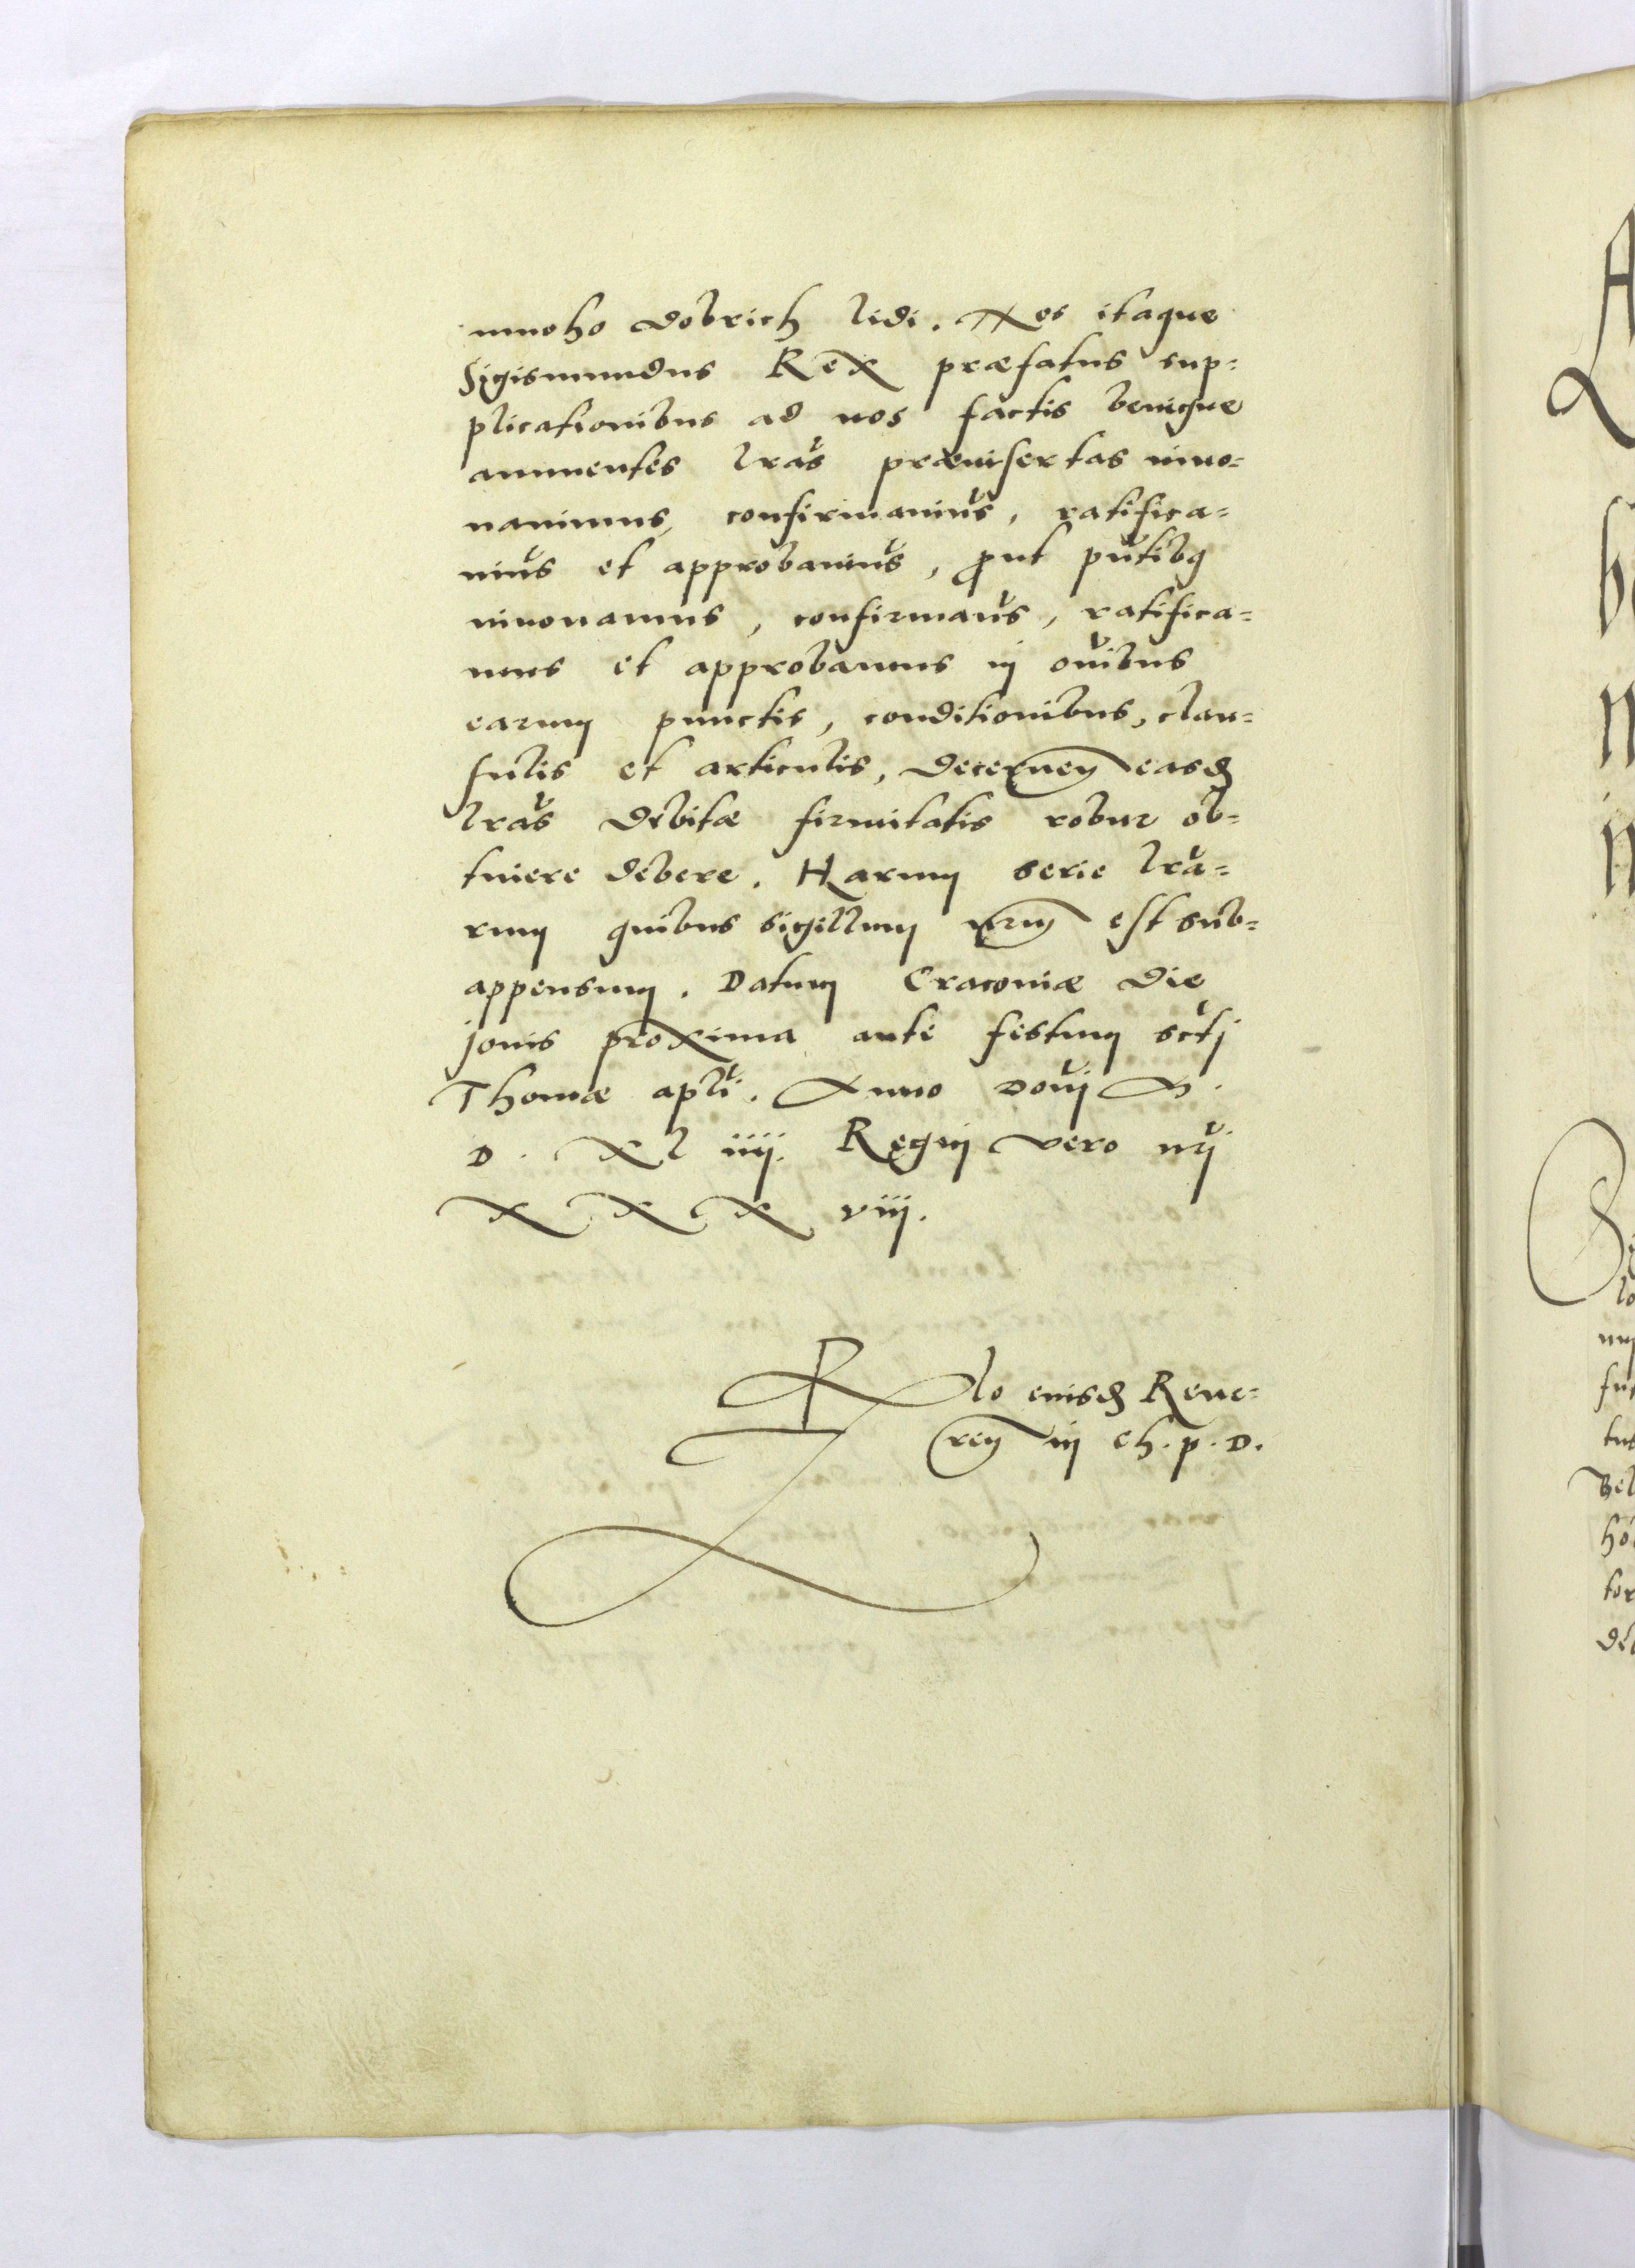 mnoho dobrich lidi. Nos itaque
Sigismundus Rex præfatus sup=
plicationibus ad nos factis benigne
annuentes lras præinsertas inno=
uauimus, confirmauimus, ratifica=
uimus et approbauimus, prout pntibus
innouamus, confirmamus, ratifica=
mus et approbamus in omnibus
earum punctis, conditionibus, clau=
sulis et articulis, decernen easdem
lras debitæ firmitatis robur ob=
tinere debere. Harum serie lra=
rum quibus sigillum nrum est sub=
appensum. Datum Cracouiæ die
jouis proxima ante festum scti
Thomæ apli. Anno Domi M.
D. Xl iiij. Regni vero nri
X X X viij.
Rlo eiusdem Reue=
ren in Ch. p. D.